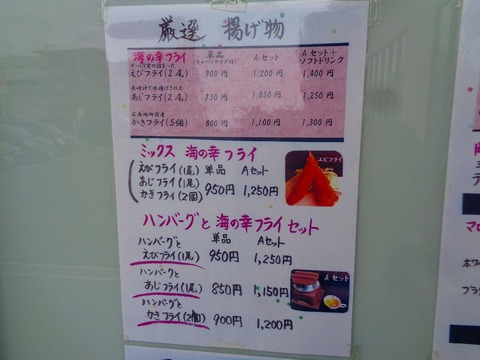 厳選 揚げ物
海の幸フライ 単品 Aセット Aセット+
ソフトドリンク
えびフライ(2尾) 900円 1,200円 1,400円
あじフライ(2尾) 750円 1,050円 1,250円
かきフライ(5個) 800円 1,100円 1,300円
ミックス 海の幸フライ
えびフライ(1尾) 単品 Aセット
あじフライ(1尾) 950円 1,250円
かきフライ(2個)
エビフライ
ハンバーグと海の幸フライセット
ハンバーグと 単品 Aセット
えびフライ(1尾) 950円 1,250円
ハンバーグと
あじフライ(1尾) 850円 1,150円
ハンバーグと
かきフライ(2個) 900円 1,200円
Aセット